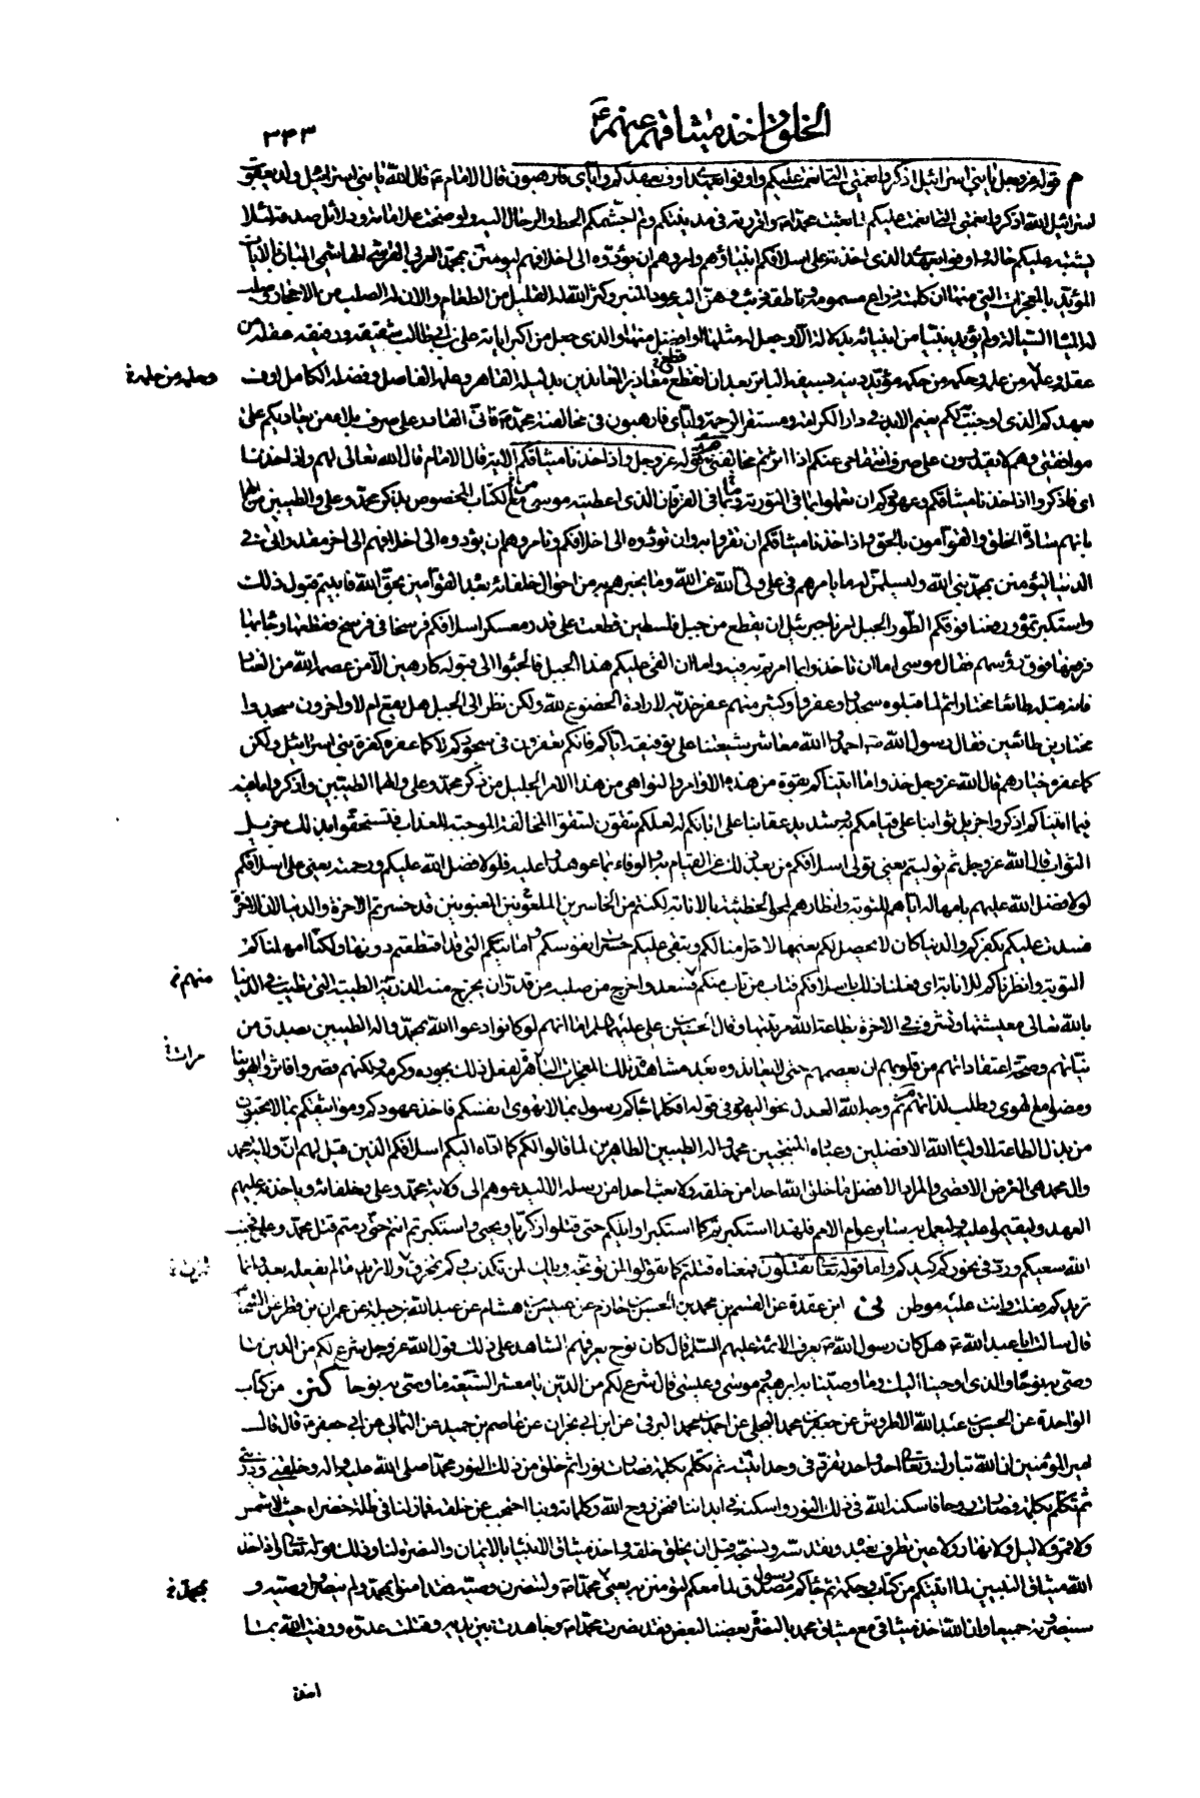 الخلق واخذ ميثاقهم عنهم ع
٣٤٣
م قوله عز وجل يا بني اسرائيل اذكروا نعمتي التي انعمت عليكم واوفوا بعهدي اوف بعهدكم واياي فارهبون قال الامام ع قال الله يا بني اسرائيل ولد يعقوب
اسرائيل الله اذكروا نعمتي التي انعمت عليكم لما بعثت محمدا ص واقررته في مدينتكم ولم اجشمكم الحط والترحال اليه واوضحت علاماته ودلائل صدقه لئلا
يشتبه عليكم حاله واوفوا بعهدي الذي اخذته على اسلافكم انبياؤهم وامروهم ان يؤدوه الى اخلافهم ليؤمنن بمحمد العربي القرشي الهاشمي المبان بالايات
المؤيد بالمعجزات التي منها ان كلمته ذراع مسمومة وناطقه ذئب وحن اليه عود المنبر وكثر الله له القليل من الطعام والان له الصلب من الاحجار وصلبت
له المياه السيالة ولم يؤيد نبيا من انبيائه بدلالة الا وجعل له مثلها او افضل منها والذي جعل من اكبر اياته علي بن ابي طالب شقيقه ورفيقه عقله من
عقله وعلمه من علمه وحكمه من حكمه مؤيد دينه بسيفه الباتر بعد ان قطع معاذير المعاندين بدليله القاهر وعلمه الفاضل وفضله الكامل اوف
وحلمه من حلمه خ
بعهدكم الذي اوجبت لكم نعيم الابد في دار الكرامة ومستقر الرحمة واياي فارهبون في مخالفة محمد ص فاني القادر على صرف بلاء من يعاديكم على
موافقتي وهم لا يقدرون على صرف انتقامي عنكم اذا اثرتم مخالفتي قوله عز وجل واذ اخذنا ميثاقكم الاية قال الامام قال الله تعالى لهم واذ اخذنا
اي فاذكروا اذ اخذنا ميثاقكم وعهودكم ان تعملوا بما في التورية وما في الفرقان الذي اعطيته موسى مع الكتاب المخصوص بذكر محمد وعلي والطيبين من الهما
بانهم سادة الخلق والقوامون بالحق واذ اخذنا ميثاقكم ان تقروا به وان تؤدوه الى اخلافكم وتامروهم ان يؤدوه الى اخلافهم الى اخر مقدراتي في
الدنيا ليؤمنن بمحمد نبي الله وليسلمن له ما يامرهم في علي ولي الله عن الله وما يخبرهم به من احوال خلفائه بعده القوامين بحق الله فابيتم قبول ذلك
واستكبرتموه ورفعنا فوقكم الطور الجبل امرنا جبرئيل ان يقطع من جبل فلسطين قطعة على قدر معسكر اسلافكم فرسخا في فرسخ فقطعها وجاء بها
فرفعها فوق رؤسهم فقال موسى اما ان تاخذوا بما امرتم به فيه واما ان القي عليكم هذا الجبل فالجئوا الى قبوله كارهين الا من عصمه الله من العناد
فانه قبله طائعا مختارا ثم لما قبلوه سجدوا وعفروا وكثير منهم عفر خديه لا ارادة الخضوع لله ولكن نظر الى الجبل هل يقع ام لا واخرون سجدوا
مختارين طائعين فقال رسول الله ص احمدوا الله معاشر شيعتنا على توفيقه اياكم فانكم تعفرون في سجودكم لا كما عفره كفرة بني اسرائيل ولكن
كما عفره خيارهم قال الله عز وجل خذوا ما اتيناكم بقوة من هذه الاوامر والنواهي من هذا الامر الجليل من ذكر محمد وعلي والهما الطيبين واذكروا ما فيه
فيما اتيناكم اذكروا جزيل ثوابنا على قيامكم به وشديد عقابنا على ابائكم له لعلكم تتقون لتتقوا المخالفة الموجبة للعذاب فتستحقوا بذلك جزيل
الثواب قال الله عز وجل ثم توليتم يعني تولى اسلافكم من بعد ذلك عن القيام به والوفاء بما عوهدوا عليه فلولا فضل الله عليكم ورحمته يعني على اسلافكم
لولا فضل الله عليهم بامهاله اياهم للتوبة وانظارهم لمحو الخطيئة بالانابة لكنتم من الخاسرين المغبونين قد خسرتم الاخرة والدنيا لان الاخرة
فسدت عليكم بكفركم والدنيا كان لا يحصل لكم نعيمها لاخترامنا لكم وتبقى عليكم حسرات نفوسكم وامانيكم التي قد اقتطعتم دونها ولكنا امهلناكم
التوبة وانظرناكم للانابة اي فعلنا ذلك باسلافكم فتاب من تاب منكم فسعد واخرج من صلبه من قدر ان يخرج منه الذرية الطيبة التي تطيب في الدنيا
منهم خ
بالله تعالى معيشتها وتشرف في الاخرة بطاعة الله مرتبتها وقال الحسين بن علي عليهما السلم اما انهم لو كانوا دعوا الله بمحمد واله الطيبين بصدق من
مرات خ
نياتهم وصحة اعتقاداتهم من قلوبهم ان يعصمهم حتى لا يعاندوه بعد مشاهدة تلك المعجزات الباهرة لفعل ذلك بجوده وكرمه ولكنهم قصروا فاثروا الهوينا
ومضوا مع الهوى في طلب لذاتهم ثم وجه الله العذل نحو اليهود في قوله افكلما جاءكم رسول بما لا تهوى انفسكم فاخذ عهودكم ومواثيقكم بما لا تحبون
من بذل الطاعة لاولياء الله الافضلين وعباده المنتجبين محمد واله الطيبين الطاهرين لما قالوا لكم كما اداه اليكم اسلافكم الذين قيل لهم ان ولاية محمد
وال محمد هي الغرض الاقصى والمراد الافضل ما خلق الله احدا من خلقه ولا بعث احدا من رسله الا ليدعوهم الى ولاية محمد وعلي وخلفائه وياخذ به عليهم
العهد وليقيموا عليه وليعمل به سائر عوام الامم فلهذا استكبرتم كما استكبر اوائلكم حتى قتلوا زكريا ويحيى واستكبرتم انتم حتى رمتم قتل محمد وعلي فخيب
الله سعيكم ورد في نحوركم كيدكم واما قوله تعالى تقتلون فمعناه قتلتم كما تقول لمن توبخه ويلك لم تكذب وكم تمخرق ولا تريد ما لم يفعله بعد وانما
تريد كم فعلت وانت عليه موطن ني ابن عقدة عن القسم بن محمد بن الحسن بن حازم عن عبيس بن هشام عن عبد الله بن جبلة عن عمران بن قطر عن الشحام
قال سالت ابا عبد الله ع هل كان رسول الله ص يعرف الائمة عليهم السلم قال كان نوح يعرفهم الشاهد على ذلك قول الله عز وجل شرع لكم من الدين ما
وصى به نوحا والذي اوحينا اليك وما وصينا به ابرهيم وموسى وعيسى قال شرع لكم من الدين يا معشر الشيعة ما وصى به نوحا كنز من كتاب
الواحدة عن الحسن بن عبد الله الاطروش عن جعفر بن محمد البجلي عن احمد بن محمد البرقي عن ابن ابي نجران عن عاصم بن حميد عن الثمالي عن ابي جعفر ع قال قال
امير المؤمنين ان الله تبارك وتعالى احد واحد تفرد في وحدانيته ثم تكلم بكلمة فصارت نورا ثم خلق من ذلك النور محمدا صلى الله عليه واله وخلقني وذريتي
ثم تكلم بكلمة فصارت روحا فاسكنه الله في ذلك النور واسكنه في ابداننا فنحن روح الله وكلماته وبنا احتجب عن خلقه فما زلنا في ظلة خضراء حيث لا شمس
ولا قمر ولا ليل ولا نهار ولا عين تطرف نعبده ونقدسه ونسبحه قبل ان يخلق خلقه واخذ ميثاق الانبياء بالايمان والنصرة لنا وذلك قوله تعالى واذ اخذ
الله ميثاق النبيين لما اتيتكم من كتاب وحكمة ثم جاءكم رسول مصدق لما معكم لتؤمنن به يعني بمحمد ص ولتنصرن وصيه فقد امنوا بمحمد ولم ينصروا وصيه و
بمحمد خ
سينصرونه جميعا وان الله اخذ ميثاقي مع ميثاق محمد بالنصرة بعضنا لبعض فقد نصرت محمدا ص وجاهدت بين يديه وقتلت عدوه ووفيت الله بما
اخذ